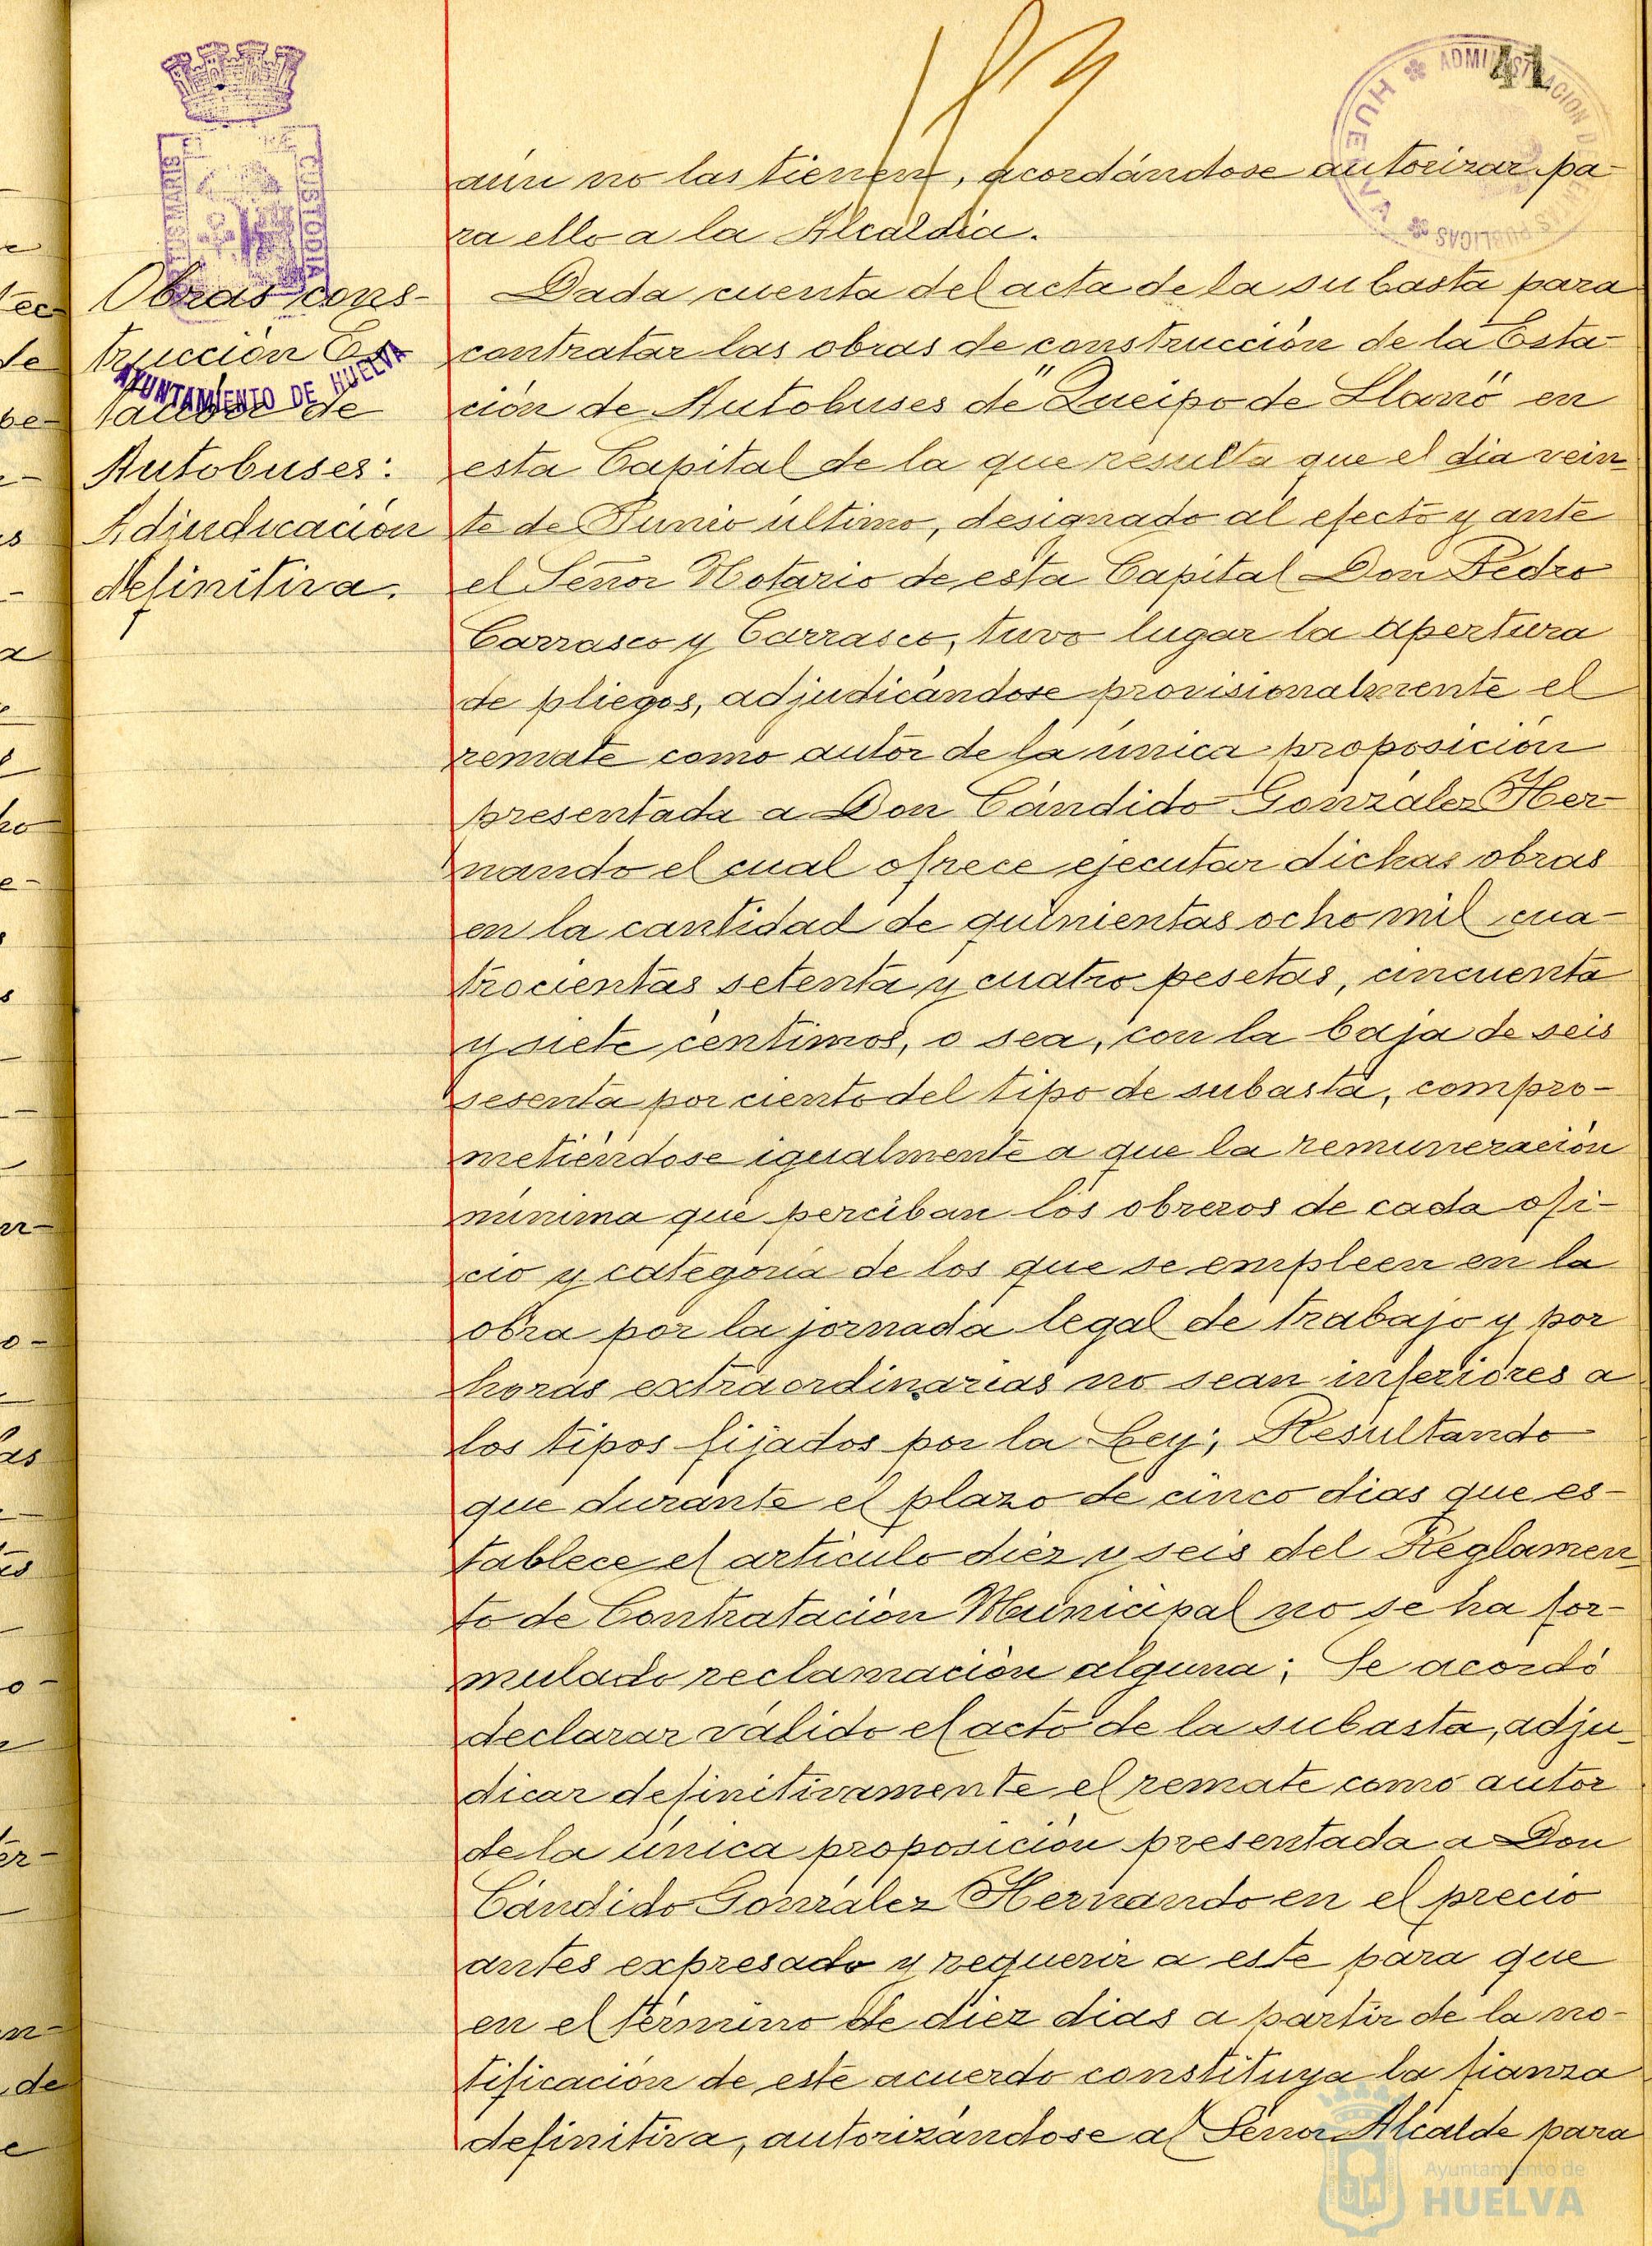 41
ADMINISTRACION DE
HUELVA
PUBLICAS
CUSTODIA
MARIS
AYUNTAMIENTO DE HUELVA
Obras cons-
trucción Es-
tación de
Autobuses:
Adjudicación
definitiva.
aún no las tienen, acordándose autorizar pa-
ra ello a la Alcaldía.
Dada cuenta del acta de la subasta para
contratar las obras de construcción de la Esta-
ción de Autobuses de "Queipo de Llano" en
esta Capital de la que resulta que el dia vein-
te de Junio último, designado al efecto y ante
el Señor Notario de esta Capital Don Pedro
Carrasco y Carrasco, tuvo lugar la apertura
de pliegos, adjudicándose provisionalmente el
remate como autor de la única proposición
presentada a Don Cándido González Her-
nando el cual ofrece ejecutar dichas obras
en la cantidad de quinientas ocho mil cua-
trocientas setenta y cuatro pesetas, cincuenta
y siete centimos, o sea, con la baja de seis
sesenta por ciento del tipo de subasta, compro-
metiéndose igualmente a que la remuneración
mínima que perciban los obreros de cada ofi-
cio y categoría de los que se empleen en la
obra por la jornada legal de trabajo y por
horas extraordinarias no sean inferiores a
los tipos fijados por la Ley; Resultando
que durante el plazo de cinco dias que es-
tablece el artículo diez y seis del Reglamen-
to de Contratación Municipal no se ha for-
mulado reclamación alguna; Se acordó
declarar válido el acto de la subasta, adju-
dicar definitivamente el remate como autor
de la única proposición presentada a Don
Cándido González Hernando en el precio
antes expresado y requerir a este para que
en el término de diez dias a partir de la no-
tificación de este acuerdo constituya la fianza
definitiva, autorizándose al Señor Alcalde para
Ayuntamiento de
HUELVA